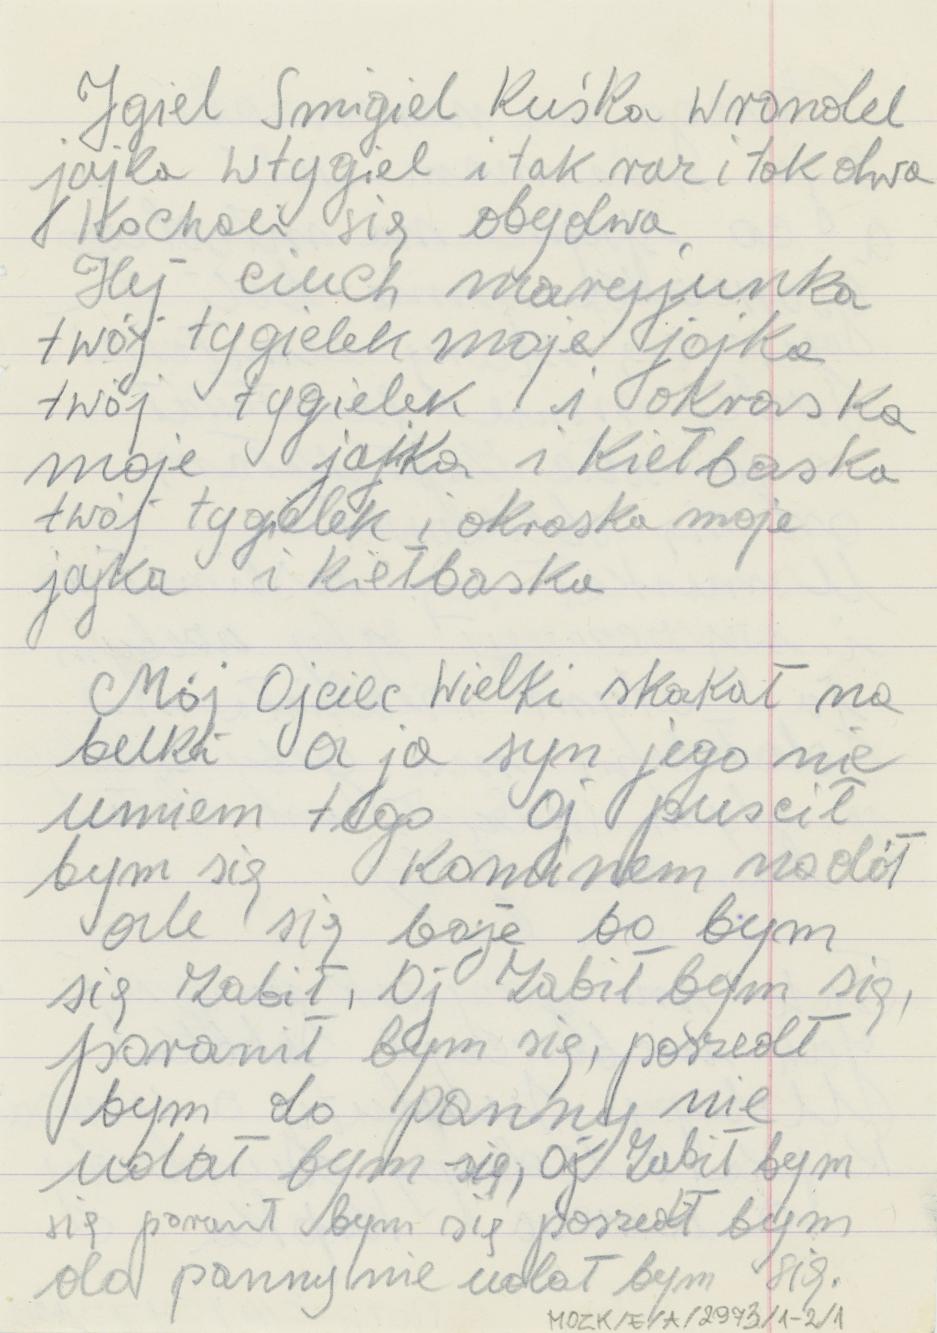 Jgiel Smigiel Kuśka Wrondel
jajka wtygiel i tak raz i tak dwa
Kochali się obydwa
Hej ciuch maryjunka
twój tygielek moje jajka
twój tygielek i okraska
moje jajka i Kiełbaska
twój tygielek i okraska moje
jajka i Kiełbaska
Mój Ojciec Wielki skakał na
belki a ja syn jego nie
umiem tego Oj puscił
bym się Kominem nadół
ale się boże bo bym
się Zabił, Oj Zabił bym się,
poranił bym się, poszedł
bym do panny nie
udał bym się, Oj Zabił bym
się poranił bym się poszedł bym
do panny nie udał bym się.
MOZK/E/A/2973/1-2/1